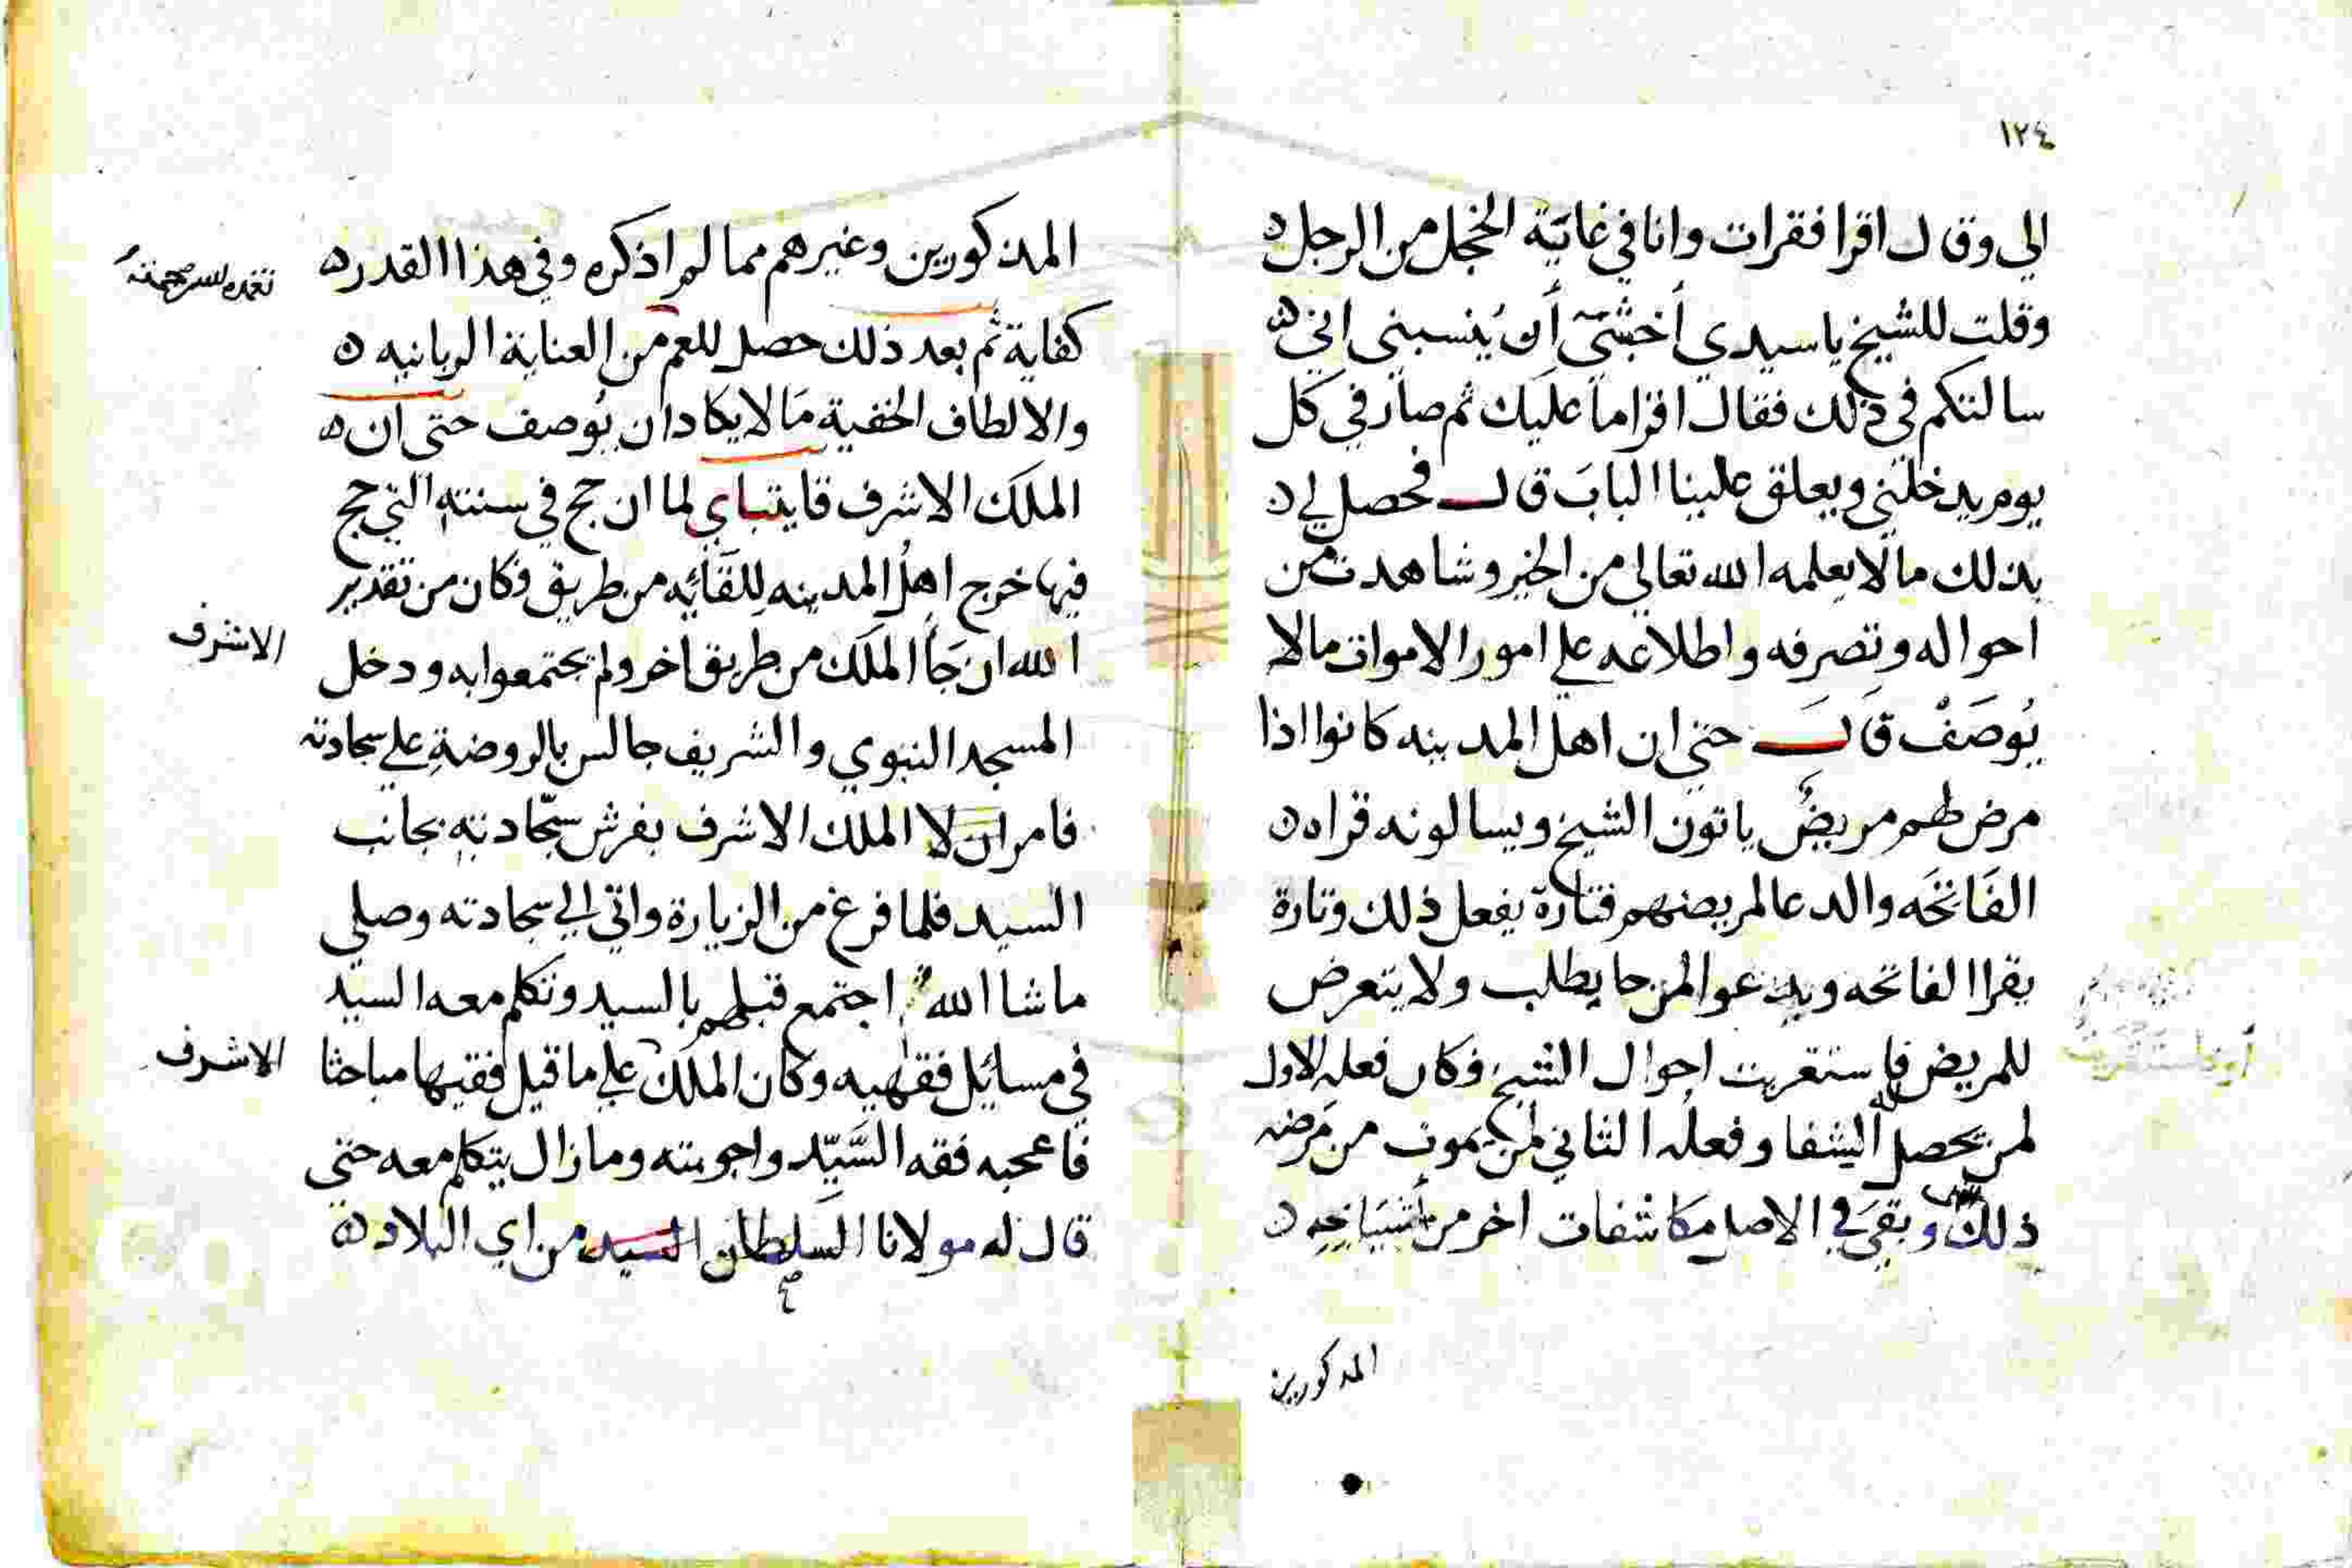 ١٢٤
الي وقال اقرا فقرات وانا في غاية الخجل من الرجل ه
وقلت للشيخ يا سيدي أخشى أن ينسبني اني ه
سالتكم في ذلك فقال اقرا ما عليك ثم صار في كل
يوم يدخلني ويعلق علينا الباب قال فحصل لي ه
بذلك ما لا يعلمه الله تعالي من الخير وشاهدت من
احواله وتصرفه واطلاعه علي امور الاموات ما لا
يُوصَفْ قَال حتي ان اهل المدينه كانوا اذا
مرض لهم مريضٌ ياتون الشيخ ويسالونه قراه ه
الفَاتحَه والدعا لمريضهم فتارة يفعل ذلك وتارة
يقرا الفاتحه ويدعوا لمن حا يطلب ولا يتعرض
للمريض فاستقريت احوال الشيخ فكان فعله الاول
لمن يحصل له الشفا وفعله الثاني لمن يموت من مَرَضه
ذلك وبقيَ في الاصل مكاشفات اخر من أشيَاخِهِ ه
المذكورين
المذكورين وغيرهم مما لم اذكره وفي هذا القدر ه
كفاية ثم بعد ذلك حصل للعم من العناية الربانيه ه
والالطاف الخفية مَا لا يكاد ان يُوصف حتي ان ه
الملك الاشرف قايتباي لما ان حج في سنته التي حج
فيها خرج اهلُ المدينه لِلقَائِهِ من طريق فكان من تقدير
الله ان جَاأ الملك من طريق اخر ولم يجتمعوا به ودخل
الاشرف
المسجد النبوي والشريف جالس بالروضةِ علي سجادته
فامر ان لا الملك الاشرف بفرش سجّادتهِ بجانب
السيد فلما فرغ من الزيارة واتي الي سجادته وصلي
ما شا الله اجتمع قبلهم بالسيد وتكلم معه السيد
في مسائِل فقهيه وكان الملك علي ما قيل فقيها مباحثا
الاشرف
فاعجبه فقه السَّيّد واجوبته وما زال يتكلم معه حتي
قال له مولانا السلطان السيد من اي البلاد ه